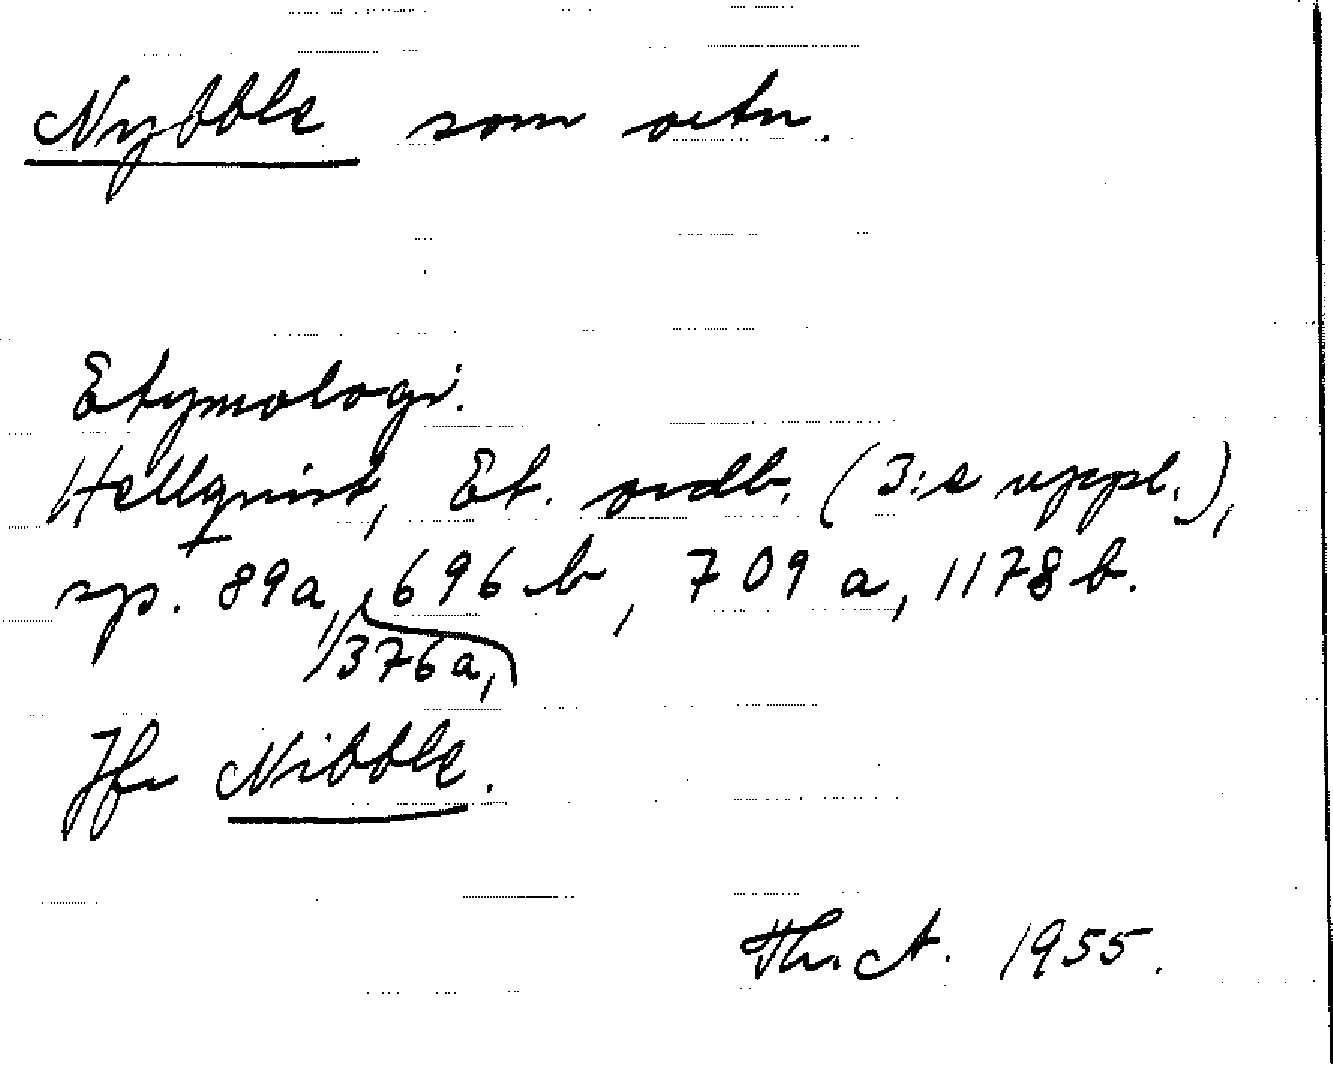 Nybble som ortn.
Etymologi.
Hellquist, Et. ordb. (3:e uppl.),
sp. 89a, 376a, 696 b, 709 a, 1178 b.
Jfr Nibble.
Th. A. 1955.